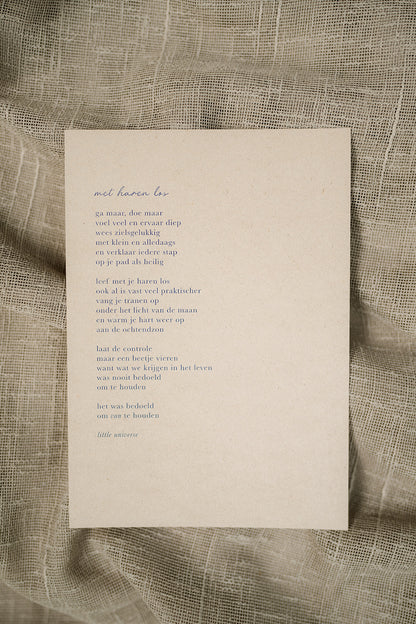 met haren los
ga maar, doe maar
voel veel en ervaar diep
wees zielsgelukkig
met klein en alledaags
en verklaar iedere stap
op je pad als heilig
leef met je haren los
ook al is vast veel praktischer
vang je tranen op
onder het licht van de maan
en warm je hart weer op
aan de ochtendzon
laat de controle
maar een beetje vieren
want wat we krijgen in het leven
was nooit bedoeld
om te houden
het was bedoeld
om van te houden
little universe